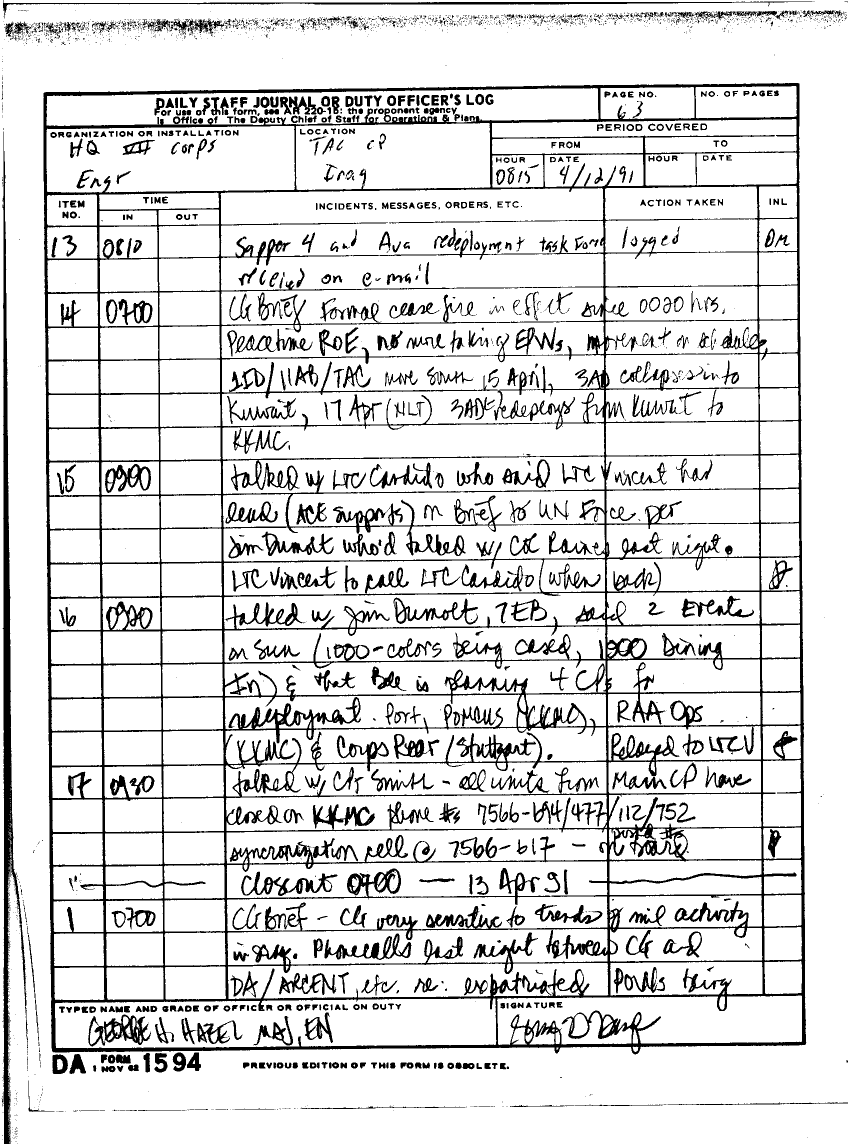 DAILY STAFF JOURNAL OR DUTY OFFICER'S LOG
For use of this form, see AR 220-15: the proponent agency
is Office of The Deputy Chief of Staff for Operations & Plans.
PAGE NO.
63
NO. OF PAGES
ORGANIZATION OR INSTALLATION
HQ VII Corps
Engr
LOCATION
TAC CP
Iraq
PERIOD COVERED
FROM
TO
HOUR
0815
DATE
4/12/91
HOUR
DATE
ITEM NO.
TIME
IN
OUT
INCIDENTS, MESSAGES, ORDERS, ETC.
ACTION TAKEN
INL
13 0810 Sapper 4 and Ava redeployment task Force logged
received on e-mail
14 0700 CG Brief Formal cease fire in effect since 0020 hrs.
Peacetime ROE, no more taking EPWs, movement on schedule,
1ID/11AB/TAC move South 15 April, 3AD collapses into
Kuwait, 17 Apr (NLT) 3AD redeploys from Kuwait to
KKMC.
15 0900 talked w/ LTC Candido who said LTC Vincent had
lead (ACE supports) on Brief to UN Force per
Jim Dumolt who'd talked w/ COL Raines last night.
LTC Vincent to call LTC Candido (when back)
16 0920 talked w/ Jim Dumolt, 7EB, said 2 Events
on Sun (1000-colors being cased, 1800 Dining
In) & that Bde is planning 4 CPs for
redeployment. Port, (KKMC), RAA Ops
(KKMC) & Corps Rear (Stuttgart). Relayed to LTC V
17 0930 talked w/ CPT Smith - all units from Main CP have
closed on KKMC phone #s 7566-694/477/112/752
syncronization cell @ 7566-617 - posted #s
on board
Closeout 0700 — 13 Apr 91
1 0700 CG Brief - CG very sensitive to trends of mil activity
in Iraq. Phonecalls last night between CG and
DA/ARCENT, etc. re: expatriated being
TYPED NAME AND GRADE OF OFFICER OR OFFICIAL ON DUTY
GEORGE H. HAZEL MAJ, EN
SIGNATURE
DA FORM 1594
1 NOV 62
PREVIOUS EDITION OF THIS FORM IS OBSOLETE.